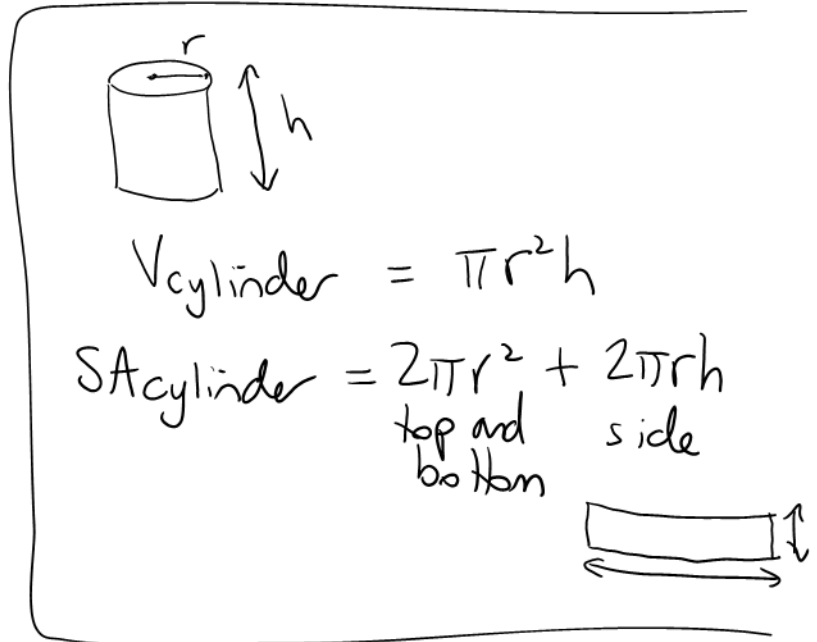 r
h
Vcylinder = πr²h
SAcylinder = 2πr² + 2πrh
top and side
bottom